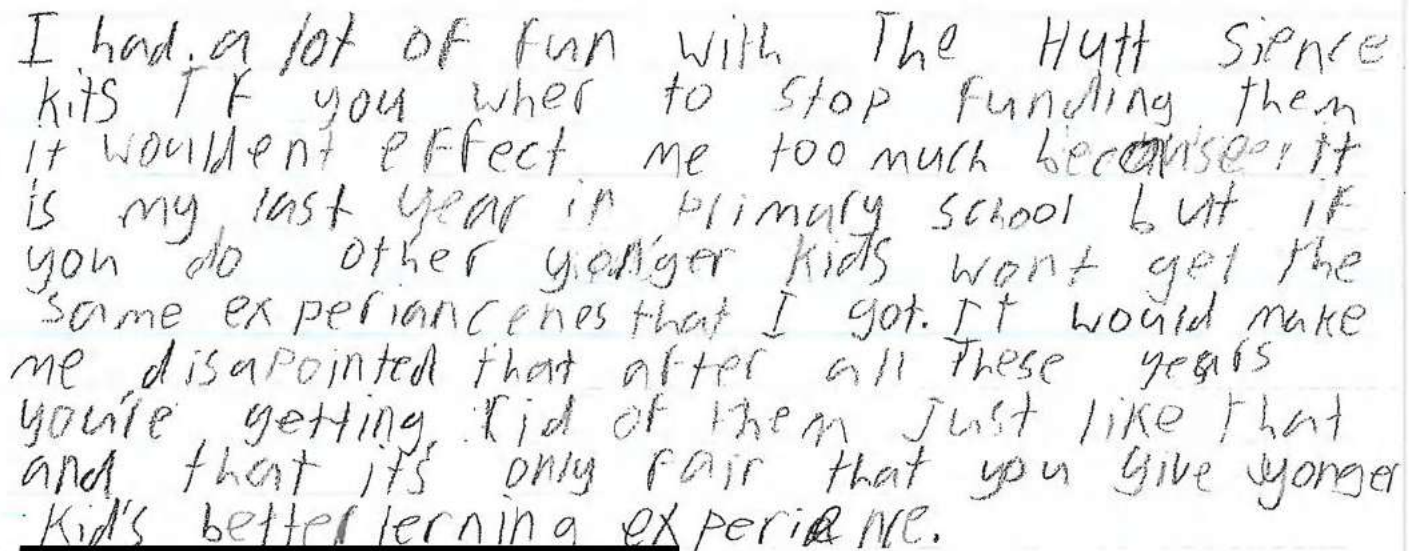 I had a lot of fun with The Hutt Sience
kits If you wher to stop funding them
it wouldent effect me too much because it
is my last year in primary school but if
you do other yonger kids wont get the
same experiancenes that I got. It would make
me disapointed that after all these years
you're getting rid of them Just like that
and that it's only fair that you give yonger
kid's better lerning experience.